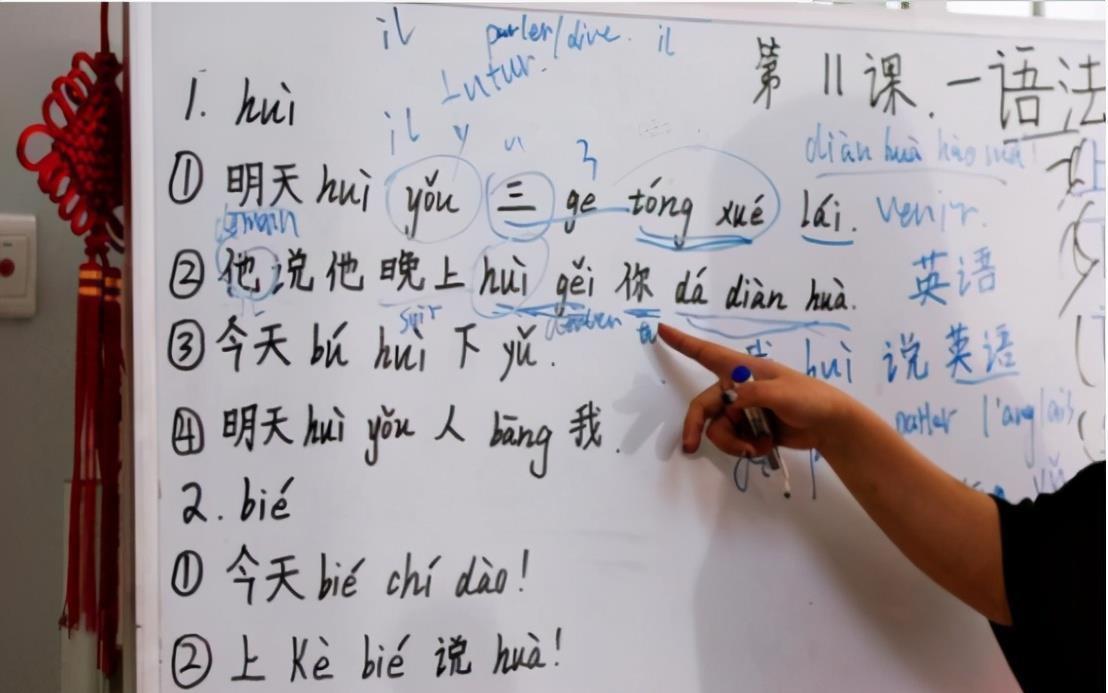 il parler/dire. il
Futur.
第 11 课. 一语法
1. huì
il y
diàn huà hǎo ma!
3
① 明天 huì yǒu 三 ge tóng xué lái. venir.
demain
② 他说他晚上 huì gěi 你 dá diàn huà. 英语
il soir tu
③ 今天 bú huì 下 yǔ. huì 说英语
parler l'anglais
④ 明天 huì yǒu 人 bāng 我.
2. bié
① 今天 bié chí dào!
② 上 Kè bié 说 huà!